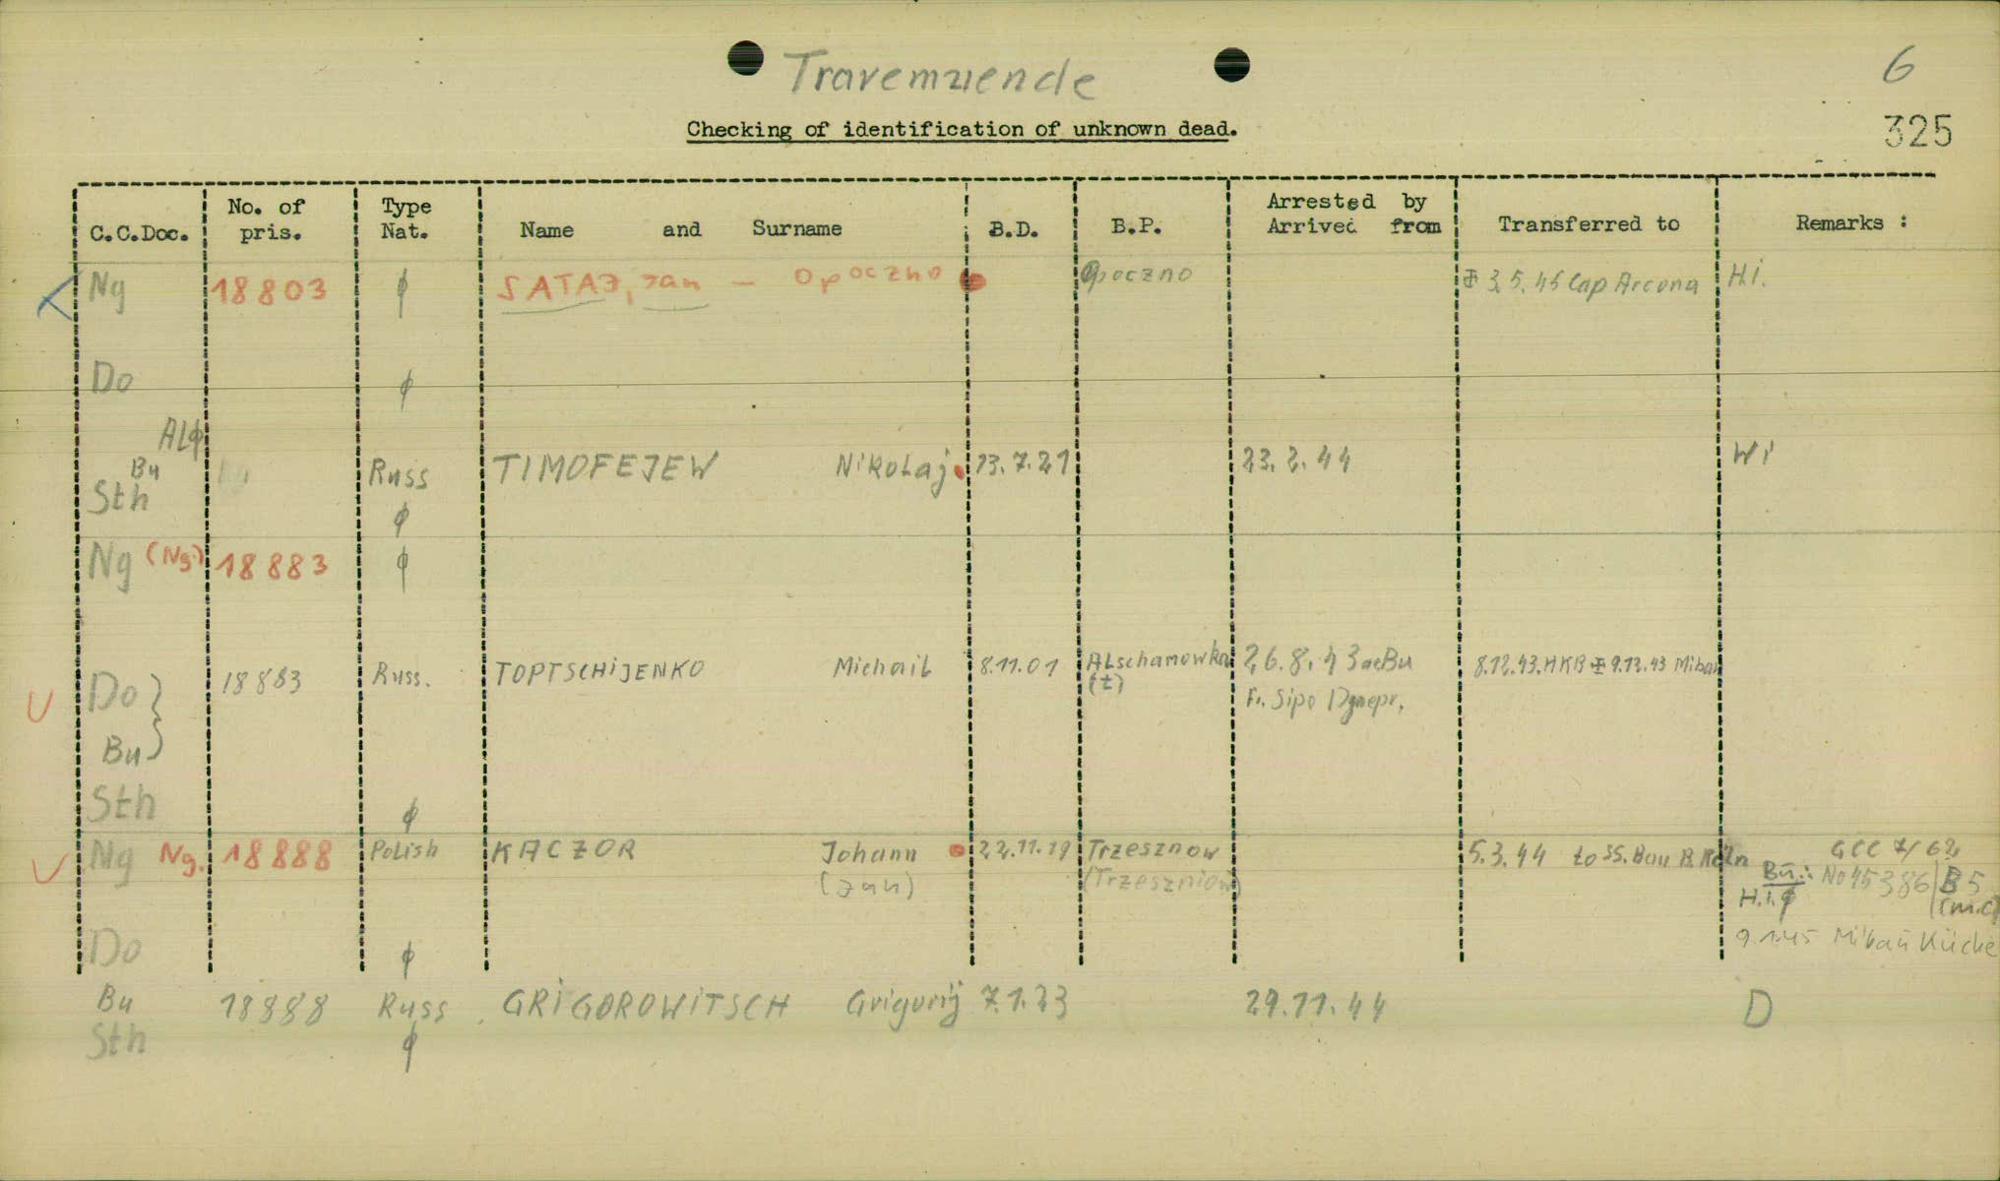 Travemuende
6
Checking of identification of unknown dead.
325
C.C.Doc. No. of pris. Type Nat. Name and Surname B.D. B.P. Arrested by Arrived from Transferred to Remarks :
Ng 18803 ϕ SATAJ, Jan – Opoczno Opoczno 3.5.45 Cap Arcona Hi.
Do ϕ
ALϕ
Bu Russ TIMOFEJEW Nikolaj 13.7.21 23.2.44 Wi
Sth ϕ
Ng (Ng) 18883 ϕ
Do 18883 Russ. TOPTSCHIJENKO Michail 8.11.01 ALschamowka 26.8.43 aeBu 8.12.43. HKB 9.12.43 Mibau
(t) Fr. Sipo Dgnepr.
Bu
Sth ϕ
Ng Ng. 18888 Polish KACZOR Johann 22.11.19 Trzesznow 5.3.44 to SS. Bau B. Köln GCC 7/62
(Jan) (Trzeszniow) Bu.: No 45386 B5
H.I.ϕ (m.c)
Do ϕ 9.1.45 Mibau Küche
Bu 18888 Russ GRIGOROWITSCH Grigorij 7.1.23 29.11.44 D
Sth ϕ